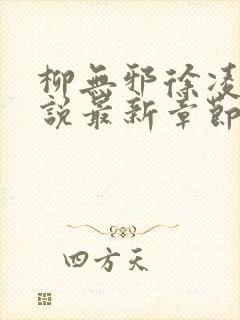 柳無邪徐凌
說最新章節
四方天